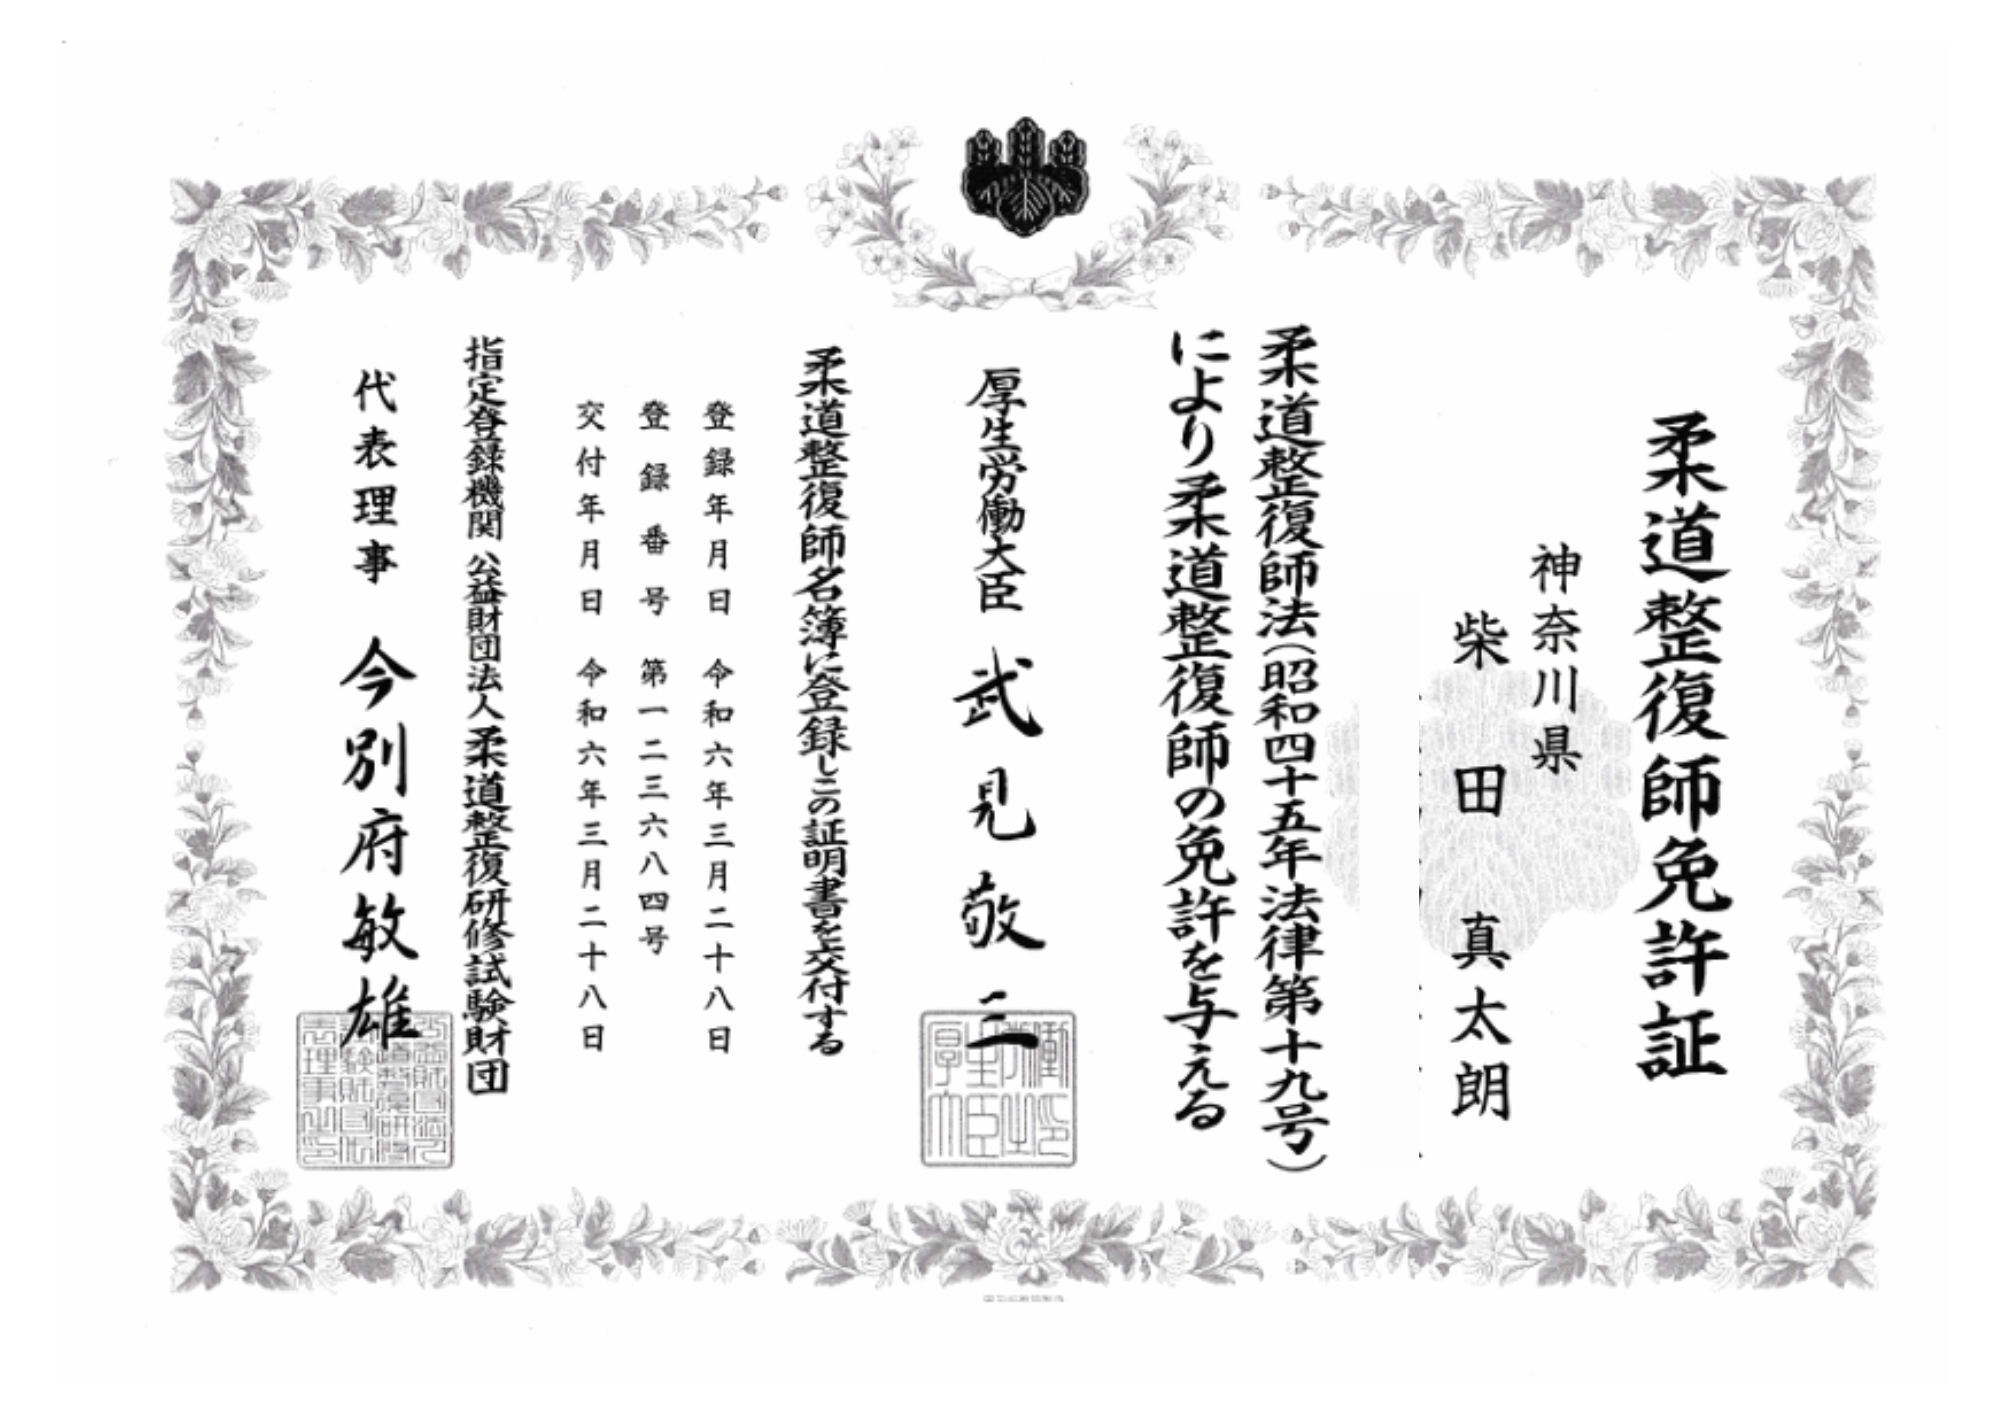 柔道整復師免許証
神奈川県
柴田 真太朗
柔道整復師法(昭和四十五年法律第十九号)
により柔道整復師の免許を与える
厚生労働大臣 武見敬三
柔道整復師名簿に登録しこの証明書を交付する
登録年月日 令和六年三月二十八日
登録番号 第一二三六八四号
交付年月日 令和六年三月二十八日
指定登録機関 公益財団法人 柔道整復研修試験財団
代表理事 今別府敏雄